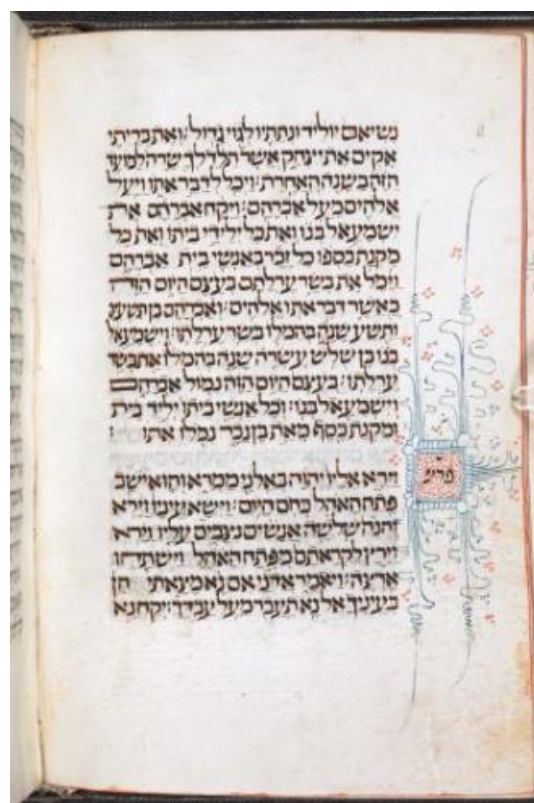 נשיאם יוליד ונתתיו לגוי גדול׃ ואת בריתי
אקים את יצחק אשר תלד לך שרה למועד
הזה בשנה האחרת׃ ויכל לדבר אתו ויעל
אלהים מעל אברהם׃ ויקח אברהם את
ישמעאל בנו ואת כל ילידי ביתו ואת כל
מקנת כספו כל זכר באנשי בית אברהם
וימל את בשר ערלתם בעצם היום הזה
כאשר דבר אתו אלהים׃ ואברהם בן תשעים
ותשע שנה בהמלו בשר ערלתו׃ וישמעאל
בנו בן שלש עשרה שנה בהמלו את בשר
ערלתו׃ בעצם היום הזה נמול אברהם
וישמעאל בנו׃ וכל אנשי ביתו יליד בית
ומקנת כסף מאת בן נכר נמלו אתו׃
וירא אליו יהוה באלני ממרא והוא ישב
פרש
פתח האהל כחם היום׃ וישא עיניו וירא
והנה שלשה אנשים נצבים עליו וירא
וירץ לקראתם מפתח האהל וישתחו
ארצה׃ ויאמר אדני אם נא מצאתי חן
בעיניך אל נא תעבר מעל עבדך׃ יקח נא